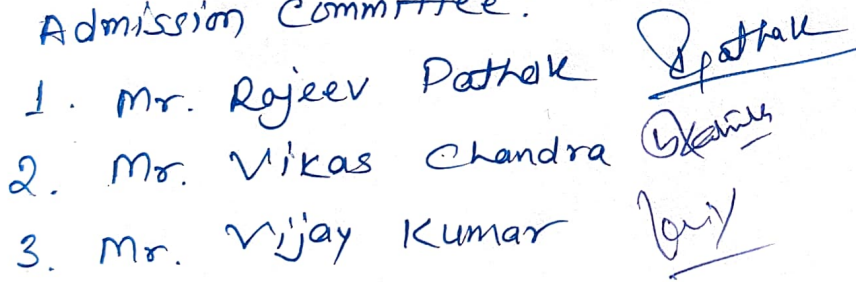 Admission Committee.
1. Mr. Rajeev Pathak
2. Mr. Vikas Chandra
3. Mr. Vijay Kumar